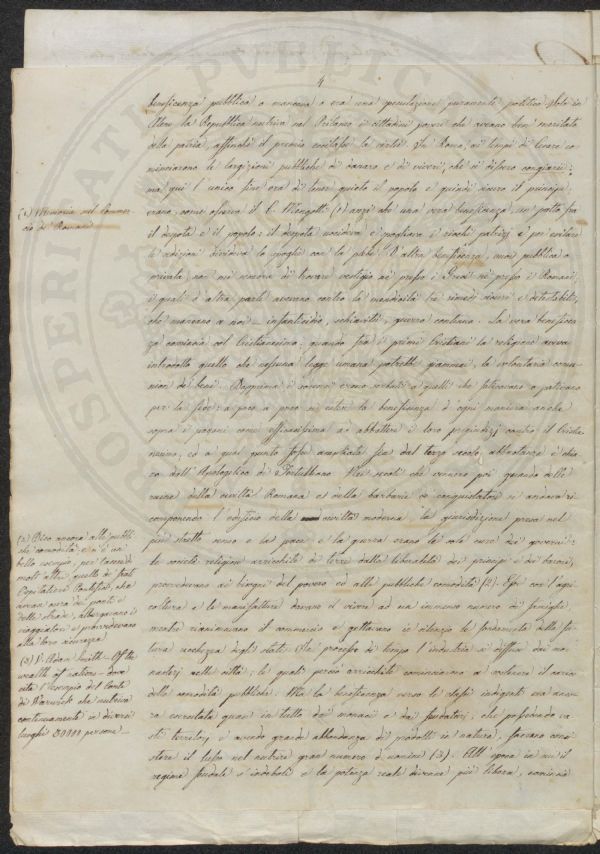 4
beneficenza pubblica o mancava o era una speculazione puramente politica. Solo in
Atene la Repubblica nutriva nel Pritaneo i cittadini poveri che aveano ben meritato
della patria, affinchè il premio eccitasse la virtù. In Roma, ai tempi di Cesare co-
minciarono le largizioni pubbliche di danaro e di viveri, che si dissero congiarii;
ma qui l'unico fine era di tener quieto il popolo e quindi sicuro il principe;
erano, come osserva il C. Mengotti (1) anzi che una vera beneficenza, un patto fra
il despota e il popolo: il despota uccideva e spogliava i ricchi patrizi e per evitare
le sedizioni divideva le spoglie con la plebe. D'altra beneficenza, ossia pubblica o
privata, non mi venne di trovare vestigio nè presso i Greci nè presso i Romani,
i quali d'altra parte avevano contro la mendicità tre rimedi sicuri e detestabili,
che mancano a noi – infanticidio, schiavitù, guerra continua. La vera beneficen-
za comincia col Cristianesimo, quando fra i primi Cristiani la religione aveva
introdotto quello che nessuna legge umana potrebbe giammai, la volontaria comu-
nione de' beni. Dapprima i soccorsi erano serbati a quelli che faticavano o pativano
per la fede: a poco a poco si estese la beneficenza d'ogni maniera anche
sopra i pagani come efficacissima ad abbattere i loro pregiudizj contro il Cristia-
nesimo, ed a qual punto fosse ampliata fin dal terzo secolo, abbastanza è chia-
ro dall'Apologetico di Tertulliano. Nei secoli che vennero poi quando dalle
rovine della civiltà Romana e dalla barbarie de' conquistatori si andava ri-
componendo l'edificio della civiltà moderna, la giurisdizione presa nel
più stretto senso e la pace e la guerra erano la sola cura dei governi:
le società religiose arricchite di terre dalla liberalità dei principi e dei baroni,
provvedevano ai bisogni del povero ed alle pubbliche comodità (2). Esse con l'agri-
coltura e le manifatture davano il vivere ad un immenso numero di famiglie,
mentre rianimavano il commercio e gettavano in silenzio le fondamenta della fu-
tura ricchezza degli stati. In processo di tempo l'industria si diffuse dai mo-
nasteri nelle città; le quali perciò arricchite cominciarono a volersi il carico
delle comodità pubbliche. Ma la beneficenza verso le classi indigenti era anco-
ra esercitata quasi in tutto dai monaci e dai feudatari, che possedendo va-
sti territorj, e avendo grande abbondanza di prodotti in natura, facevano consi-
stere il lusso nel nutrire gran numero d'uomini (3). All'epoca in cui il
regime feudale s'indebolì e la potenza reale divenne più libera, cominciò
(1) Memoria sul Commer-
cio de' Romani
(2) Dico ancora alle pubbli-
che comodità; e n'è un
bello esempio, per tacere di
molti altri quello de' frati
Ospitalieri Pontefici, che
avean cura dei ponti e
delle strade, albergavano i
viaggiatori e provvedevano
alla loro sicurezza
(3) V. Adam Smith – Of the
wealth of nations – dove
cita l'esempio del Conte
di Warwick che nutriva
continuamente in diversi
luoghi 30000 persone –
PROSPERITATI PUBLICAE